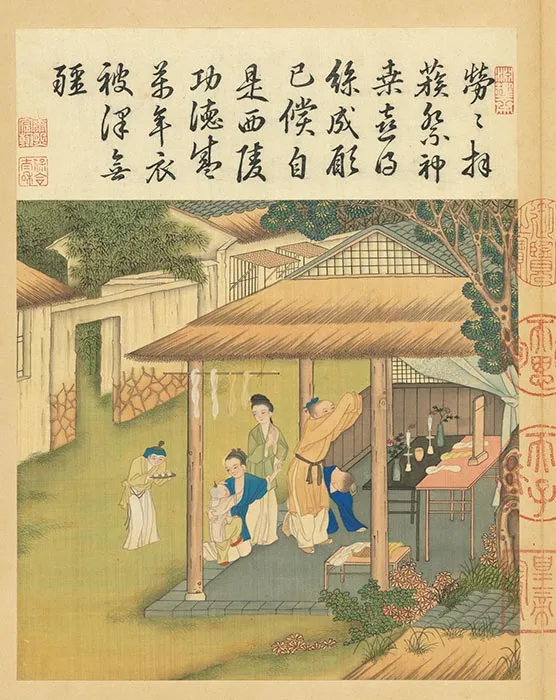 勞〻拜
簇祭神
桑喜得
絲成願
已償自
是西陵
功德盛
萬年衣
被澤無
疆